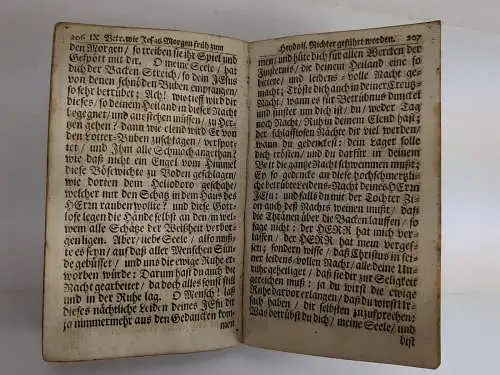 206 IX Betr. wie Jesus Morgen früh zum
den Morgen/ so treiben sie ihr Spiel und
Gespött mit dir. O meine Seele/ hat
dich der Backen Streich/ so dein JEsus
von denen schnöden Buben empfangen/
so sehr betrübet; Ach! wie tieff wird dir
dieses/ so deinem Heiland in dieser Nacht
begegnet/ und ausstehen müssen/ zu Her-
tzen gehen/ dann wie elend wird Er von
den Lotter-Buben zuschlagen/ verspot-
tet/ und Ihm alle Schmach angethan/
wie daß nicht ein Engel vom Himmel
diese Bösewichte zu Boden geschlagen/
wie dorten dem Heliodoro geschahe/
welcher mit den Schatz in dem Haus des
HErrn rauben wolte? und diese Gott-
lose legen die Hände selbst an den/ in wel-
chem alle Schätze der Weißheit verbor-
gen ligen. Aber/ liebe Seele/ also muß-
te es seyn/ auf daß aller Menschen Sün-
de gebüsset/ und uns die ewige Ruhe er-
worben würde: Darum hast du auch die
Nacht gearbeitet/ da doch alles sonst still
und in der Ruhe lag. O Mensch! laß
dieses nächtliche Leiden deines JEsu dir
ja nimmermehr aus den Gedancken kom-
men
Heydnis. Richter geführet worden. 207
men/ und hüte dich für allen Wercken der
Finsternis/ die deinem Heiland eine so
betrübte/ und leidens-volle Nacht ge-
macht; Tröste dich auch in deiner Creutz-
Nacht/ wann es für Betrübnus dunckel
und finster um dich ist/ du/ weder Tag
noch Nacht/ Ruh in deinem Elend hast;
der schlaflosen Nächten dir viel werden/
wann du gedenckest: dein Lager solle
dich trösten/ und du darfür in deinem
Bett die gantze Nacht schwemmen must;
Ey so gedencke an diese Hochschmertzli-
che betrübte Leidens-Nacht deines HErrn
JEsu; und falls du mit der Tochter Zi-
on auch deß Nachts weinen must/ daß
die Thränen über die Backen lauffen/ so
sage nicht: der HERR hat mich ver-
lassen/ der HERR hat mein verges-
sen; sondern wisse/ daß Christus in sei-
ner leidens-vollen Nacht/ alle deine Un-
ruhe geheiliget/ daß sie dir zur Seligkeit
dienen muß: ja du wirst die ewige
Ruhe darvor erlangen/ daß du wirst Ur-
sach haben/ dir selbsten zuzusprechen:
Was betrübst du dich/ meine Seele/ und
bist